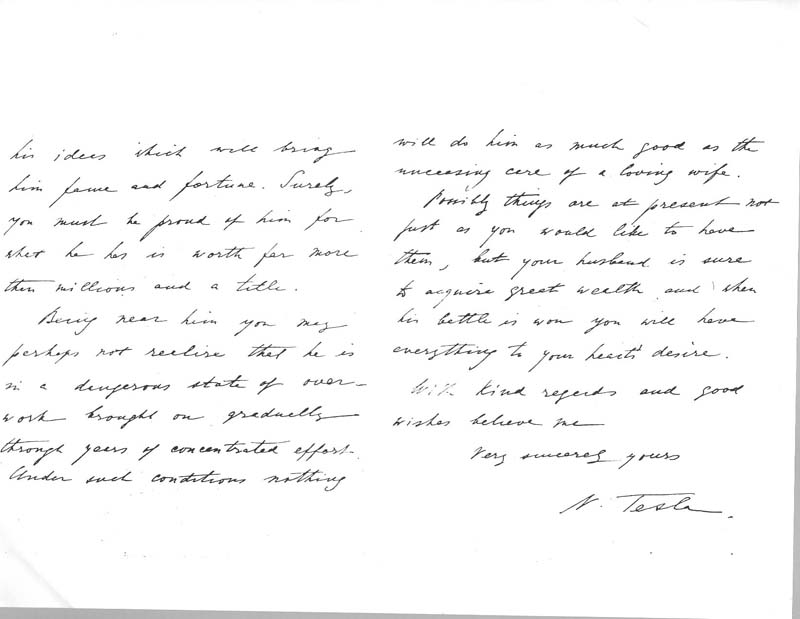 his ideas which will bring
him fame and fortune. Surely,
you must be proud of him for
what he has is worth far more
than millions and a title.
Being near him you may
perhaps not realize that he is
in a dangerous state of over-
work brought on gradually
through years of concentrated effort.
Under such conditions nothing
will do him as much good as the
unceasing care of a loving wife.
Possibly things are at present not
just as you would like to have
them, but your husband is sure
to acquire great wealth and when
his battle is won you will have
everything to your heart's desire.
With kind regards and good
wishes believe me
Very sincerely yours
N. Tesla.